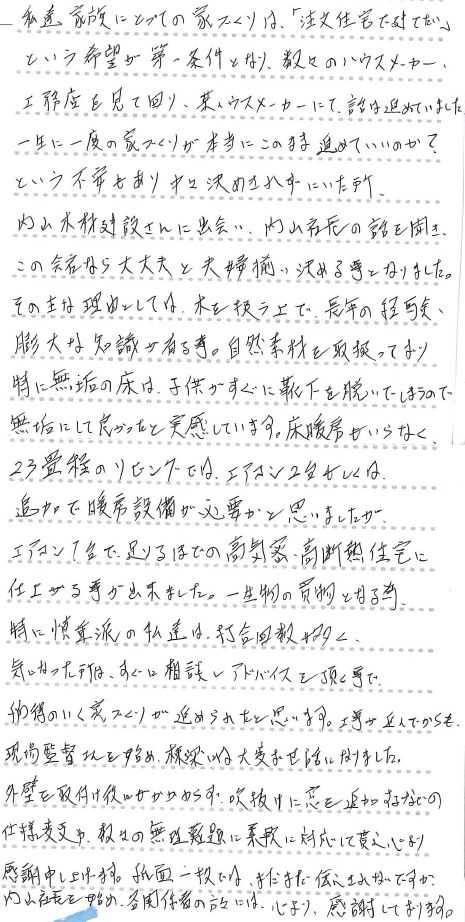 私達家族にとっての家づくりは、「注文住宅で建てたい」
という希望が第一条件となり、数々のハウスメーカー、
工務店を見て回り、某ハウスメーカーにて、話は進めていました。
一生に一度の家づくりが本当にこのまま進めていいのか？
という不安もあり中々決めきれずにいた所、
内山木材建設さんに出会い、内山社長の話を聞き、
この会社なら大丈夫と夫婦揃い決める事となりました。
その主な理由としては、木を扱う上で、長年の経験、
膨大な知識が有る事。自然素材を取扱っており
特に無垢の床は、子供がすぐに靴下を脱いでしまうので
無垢にして良かったと実感しています。床暖房もいらなく、
23畳程のリビングでは、エアコン2台もしくは、
追加で暖房設備が必要かと思いましたが、
エアコン1台で足りるほどの高気密、高断熱住宅に
仕上がる事が出来ました。一生物の買物となる為、
特に慎重派の私達は、打合回数も多く、
気になった所は、すぐに相談しアドバイスを頂く事で、
納得のいく家づくりが進められたと思います。工事が進んでからも、
現場監督さんを始め、棟梁には大変お世話になりました。
外壁を取付け後にもかかわらず、吹抜けに窓を追加するなどの
仕様変更や、数々の無理難題に柔軟に対応して貰え心より
感謝申し上げます。紙面一枚では、まだまだ伝えきれないですが
内山社長を始め、各関係者の皆さんには、心より、感謝しております。